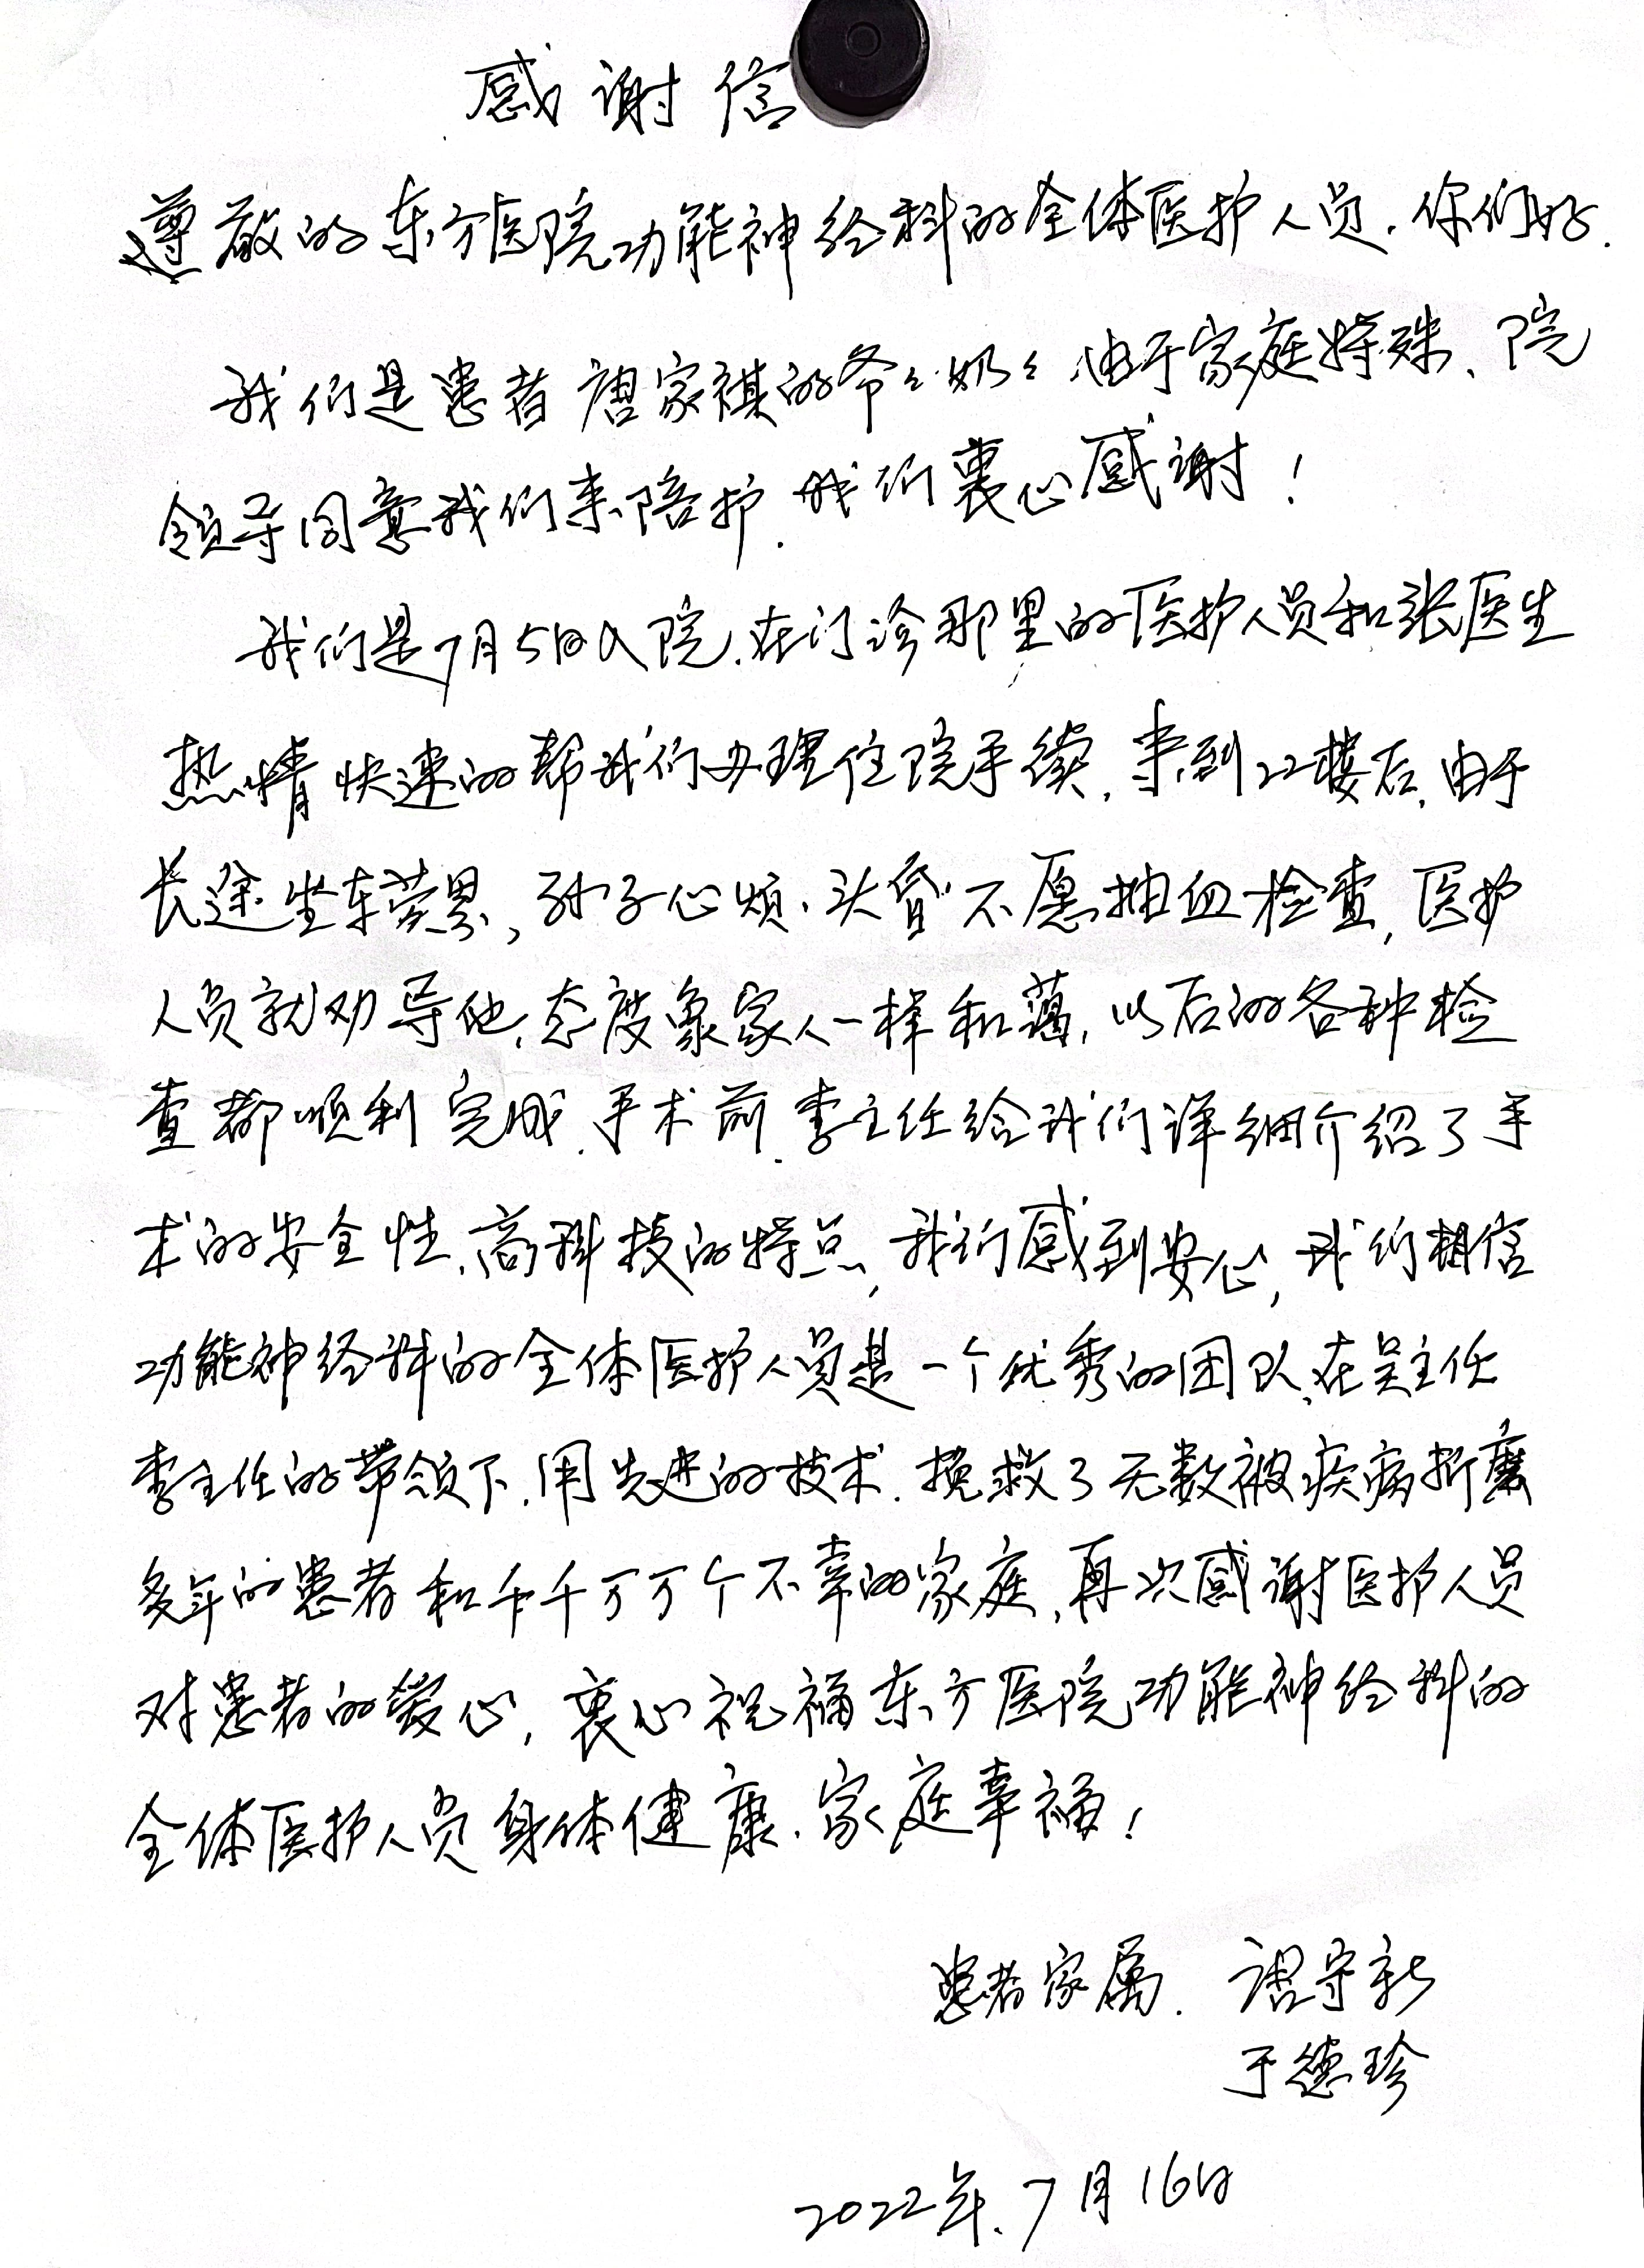 感谢信
遵敬的东方医院功能神经科的全体医护人员.你们好.
我们是患者唐家祺的爷々奶々.由于家庭特殊、院
领导同意我们来陪护.我们衷心感谢!
我们是7月5日入院.在门诊那里的医护人员和张医生
热情快速的帮我们办理住院手续,来到22楼后,由于
长途坐车劳累,孙子心烦.头昏不愿抽血检查,医护
人员就劝导他,态度象家人一样和蔼,以后的各种检
查都顺利完成.手术前.李主任给我们详细介绍了手
术的安全性、高科技的特点,我们感到安心,我们相信
功能神经科的全体医护人员是一个优秀的团队,在吴主任
李主任的带领下.用先进的技术.挽救了无数被疾病折磨
多年的患者和千千万万个不幸的家庭,再次感谢医护人员
对患者的爱心,衷心祝福东方医院功能神经科的
全体医护人员身体健康.家庭幸福!
患者家属. 守新
于德珍
2022年.7月16日